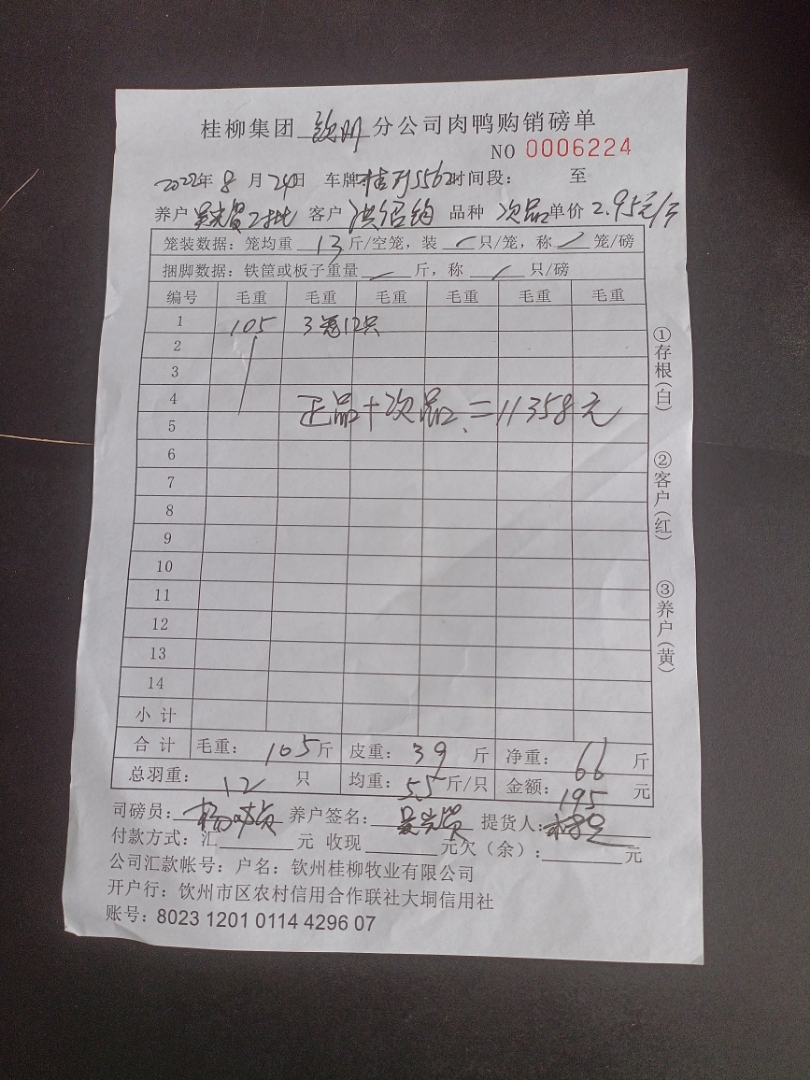 桂柳集团 钦州 分公司肉鸭购销磅单
NO 0006224
2022年 8 月 24日 车牌 5562 时间段： 至
养户 吴光贤2批 客户 洪绍钧 品种 次品 单价 2.95元/斤
笼装数据：笼均重 13 斤/空笼，装 / 只/笼，称 / 笼/磅
捆脚数据：铁筐或板子重量 / 斤，称 / 只/磅
编号 毛重 毛重 毛重 毛重 毛重 毛重
1 105 3笼12只
2
3
4
正品+次品=11358元
5
6
7
8
9
10
11
12
13
14
小计
合计 毛重： 105 斤 皮重： 39 斤 净重： 66 斤
总羽重： 12 只 均重： 5.5 斤/只 金额： 195 元
司磅员： 养户签名： 吴光贤 提货人：
付款方式：汇 元 收现 元欠（余）： 元
公司汇款帐号：户名：钦州桂柳牧业有限公司
开户行：钦州市区农村信用合作联社大垌信用社
账号：8023 1201 0114 4296 07
①存根（白）
②客户（红）
③养户（黄）